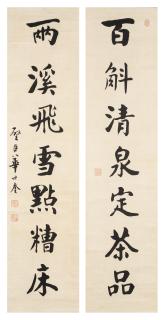 百斛清泉定茶品
兩溪飛雪點糟床
華世奎